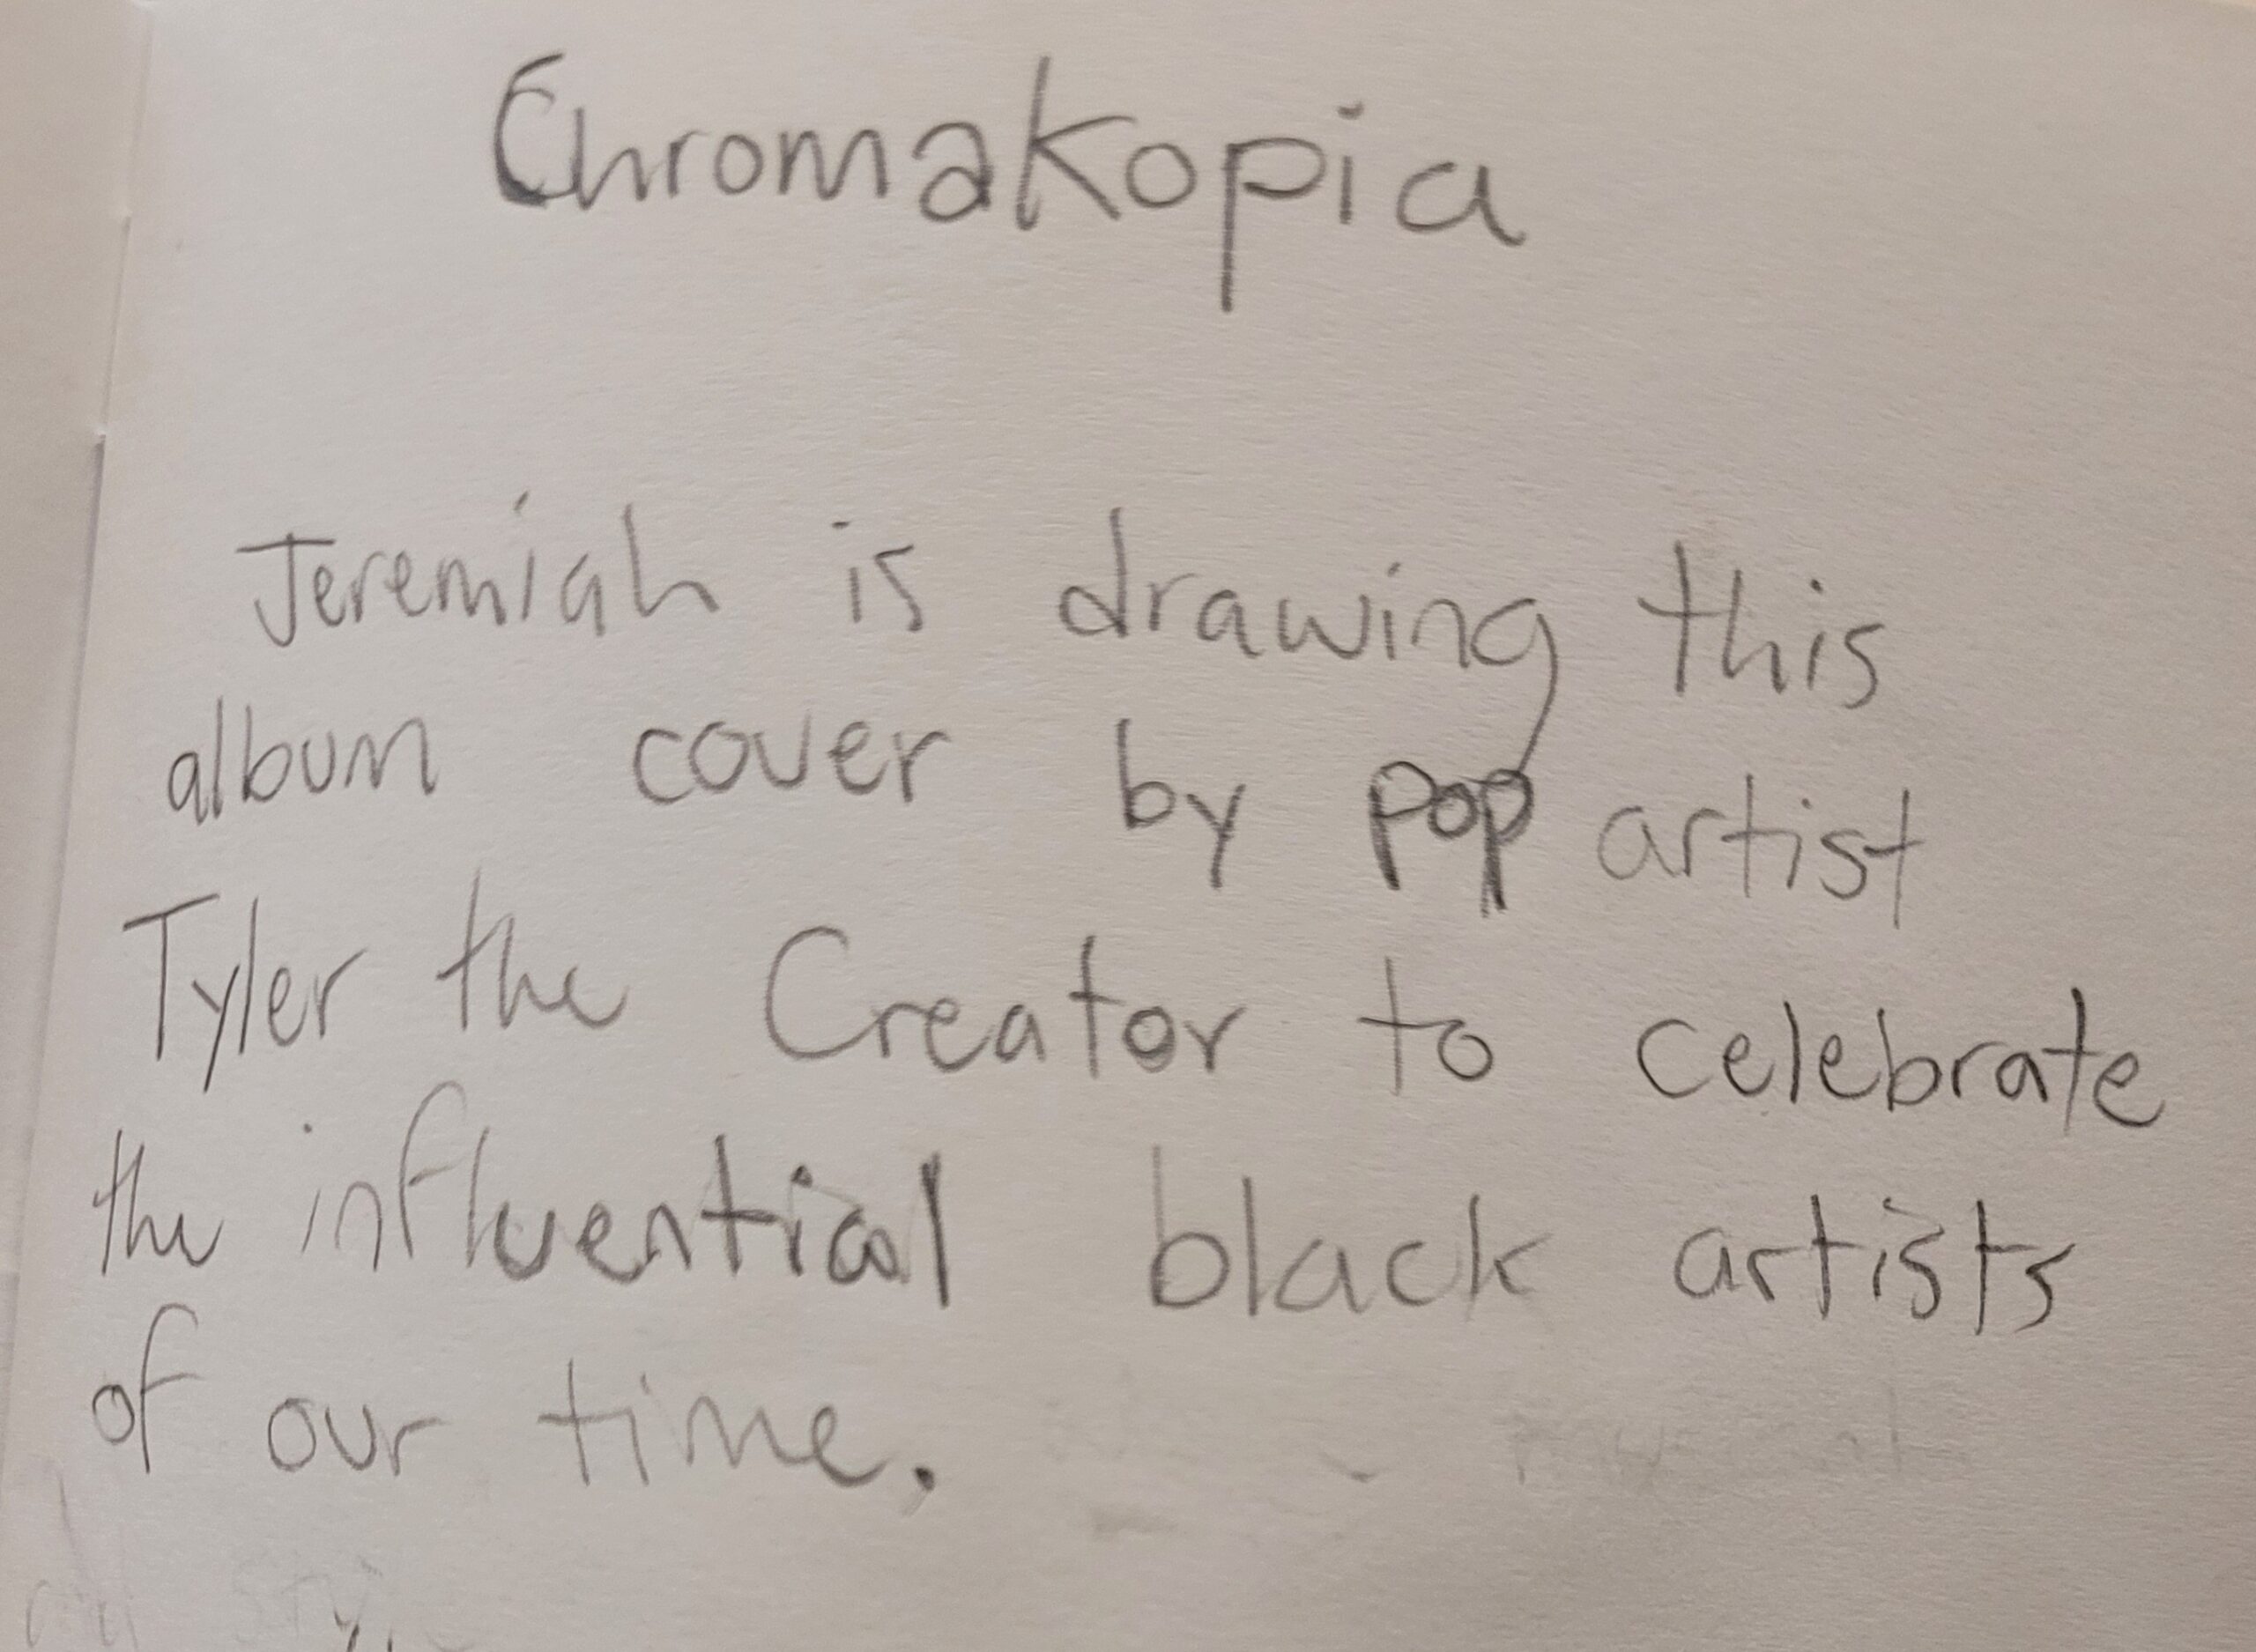 Chromakopia
Jeremiah is drawing this
album cover by pop artist
Tyler the Creator to celebrate
the influential black artists
of our time.